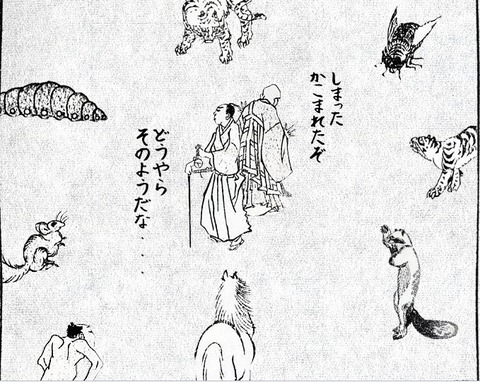 しまった
かこまれたぞ
どうやら
そのようだな・・・・